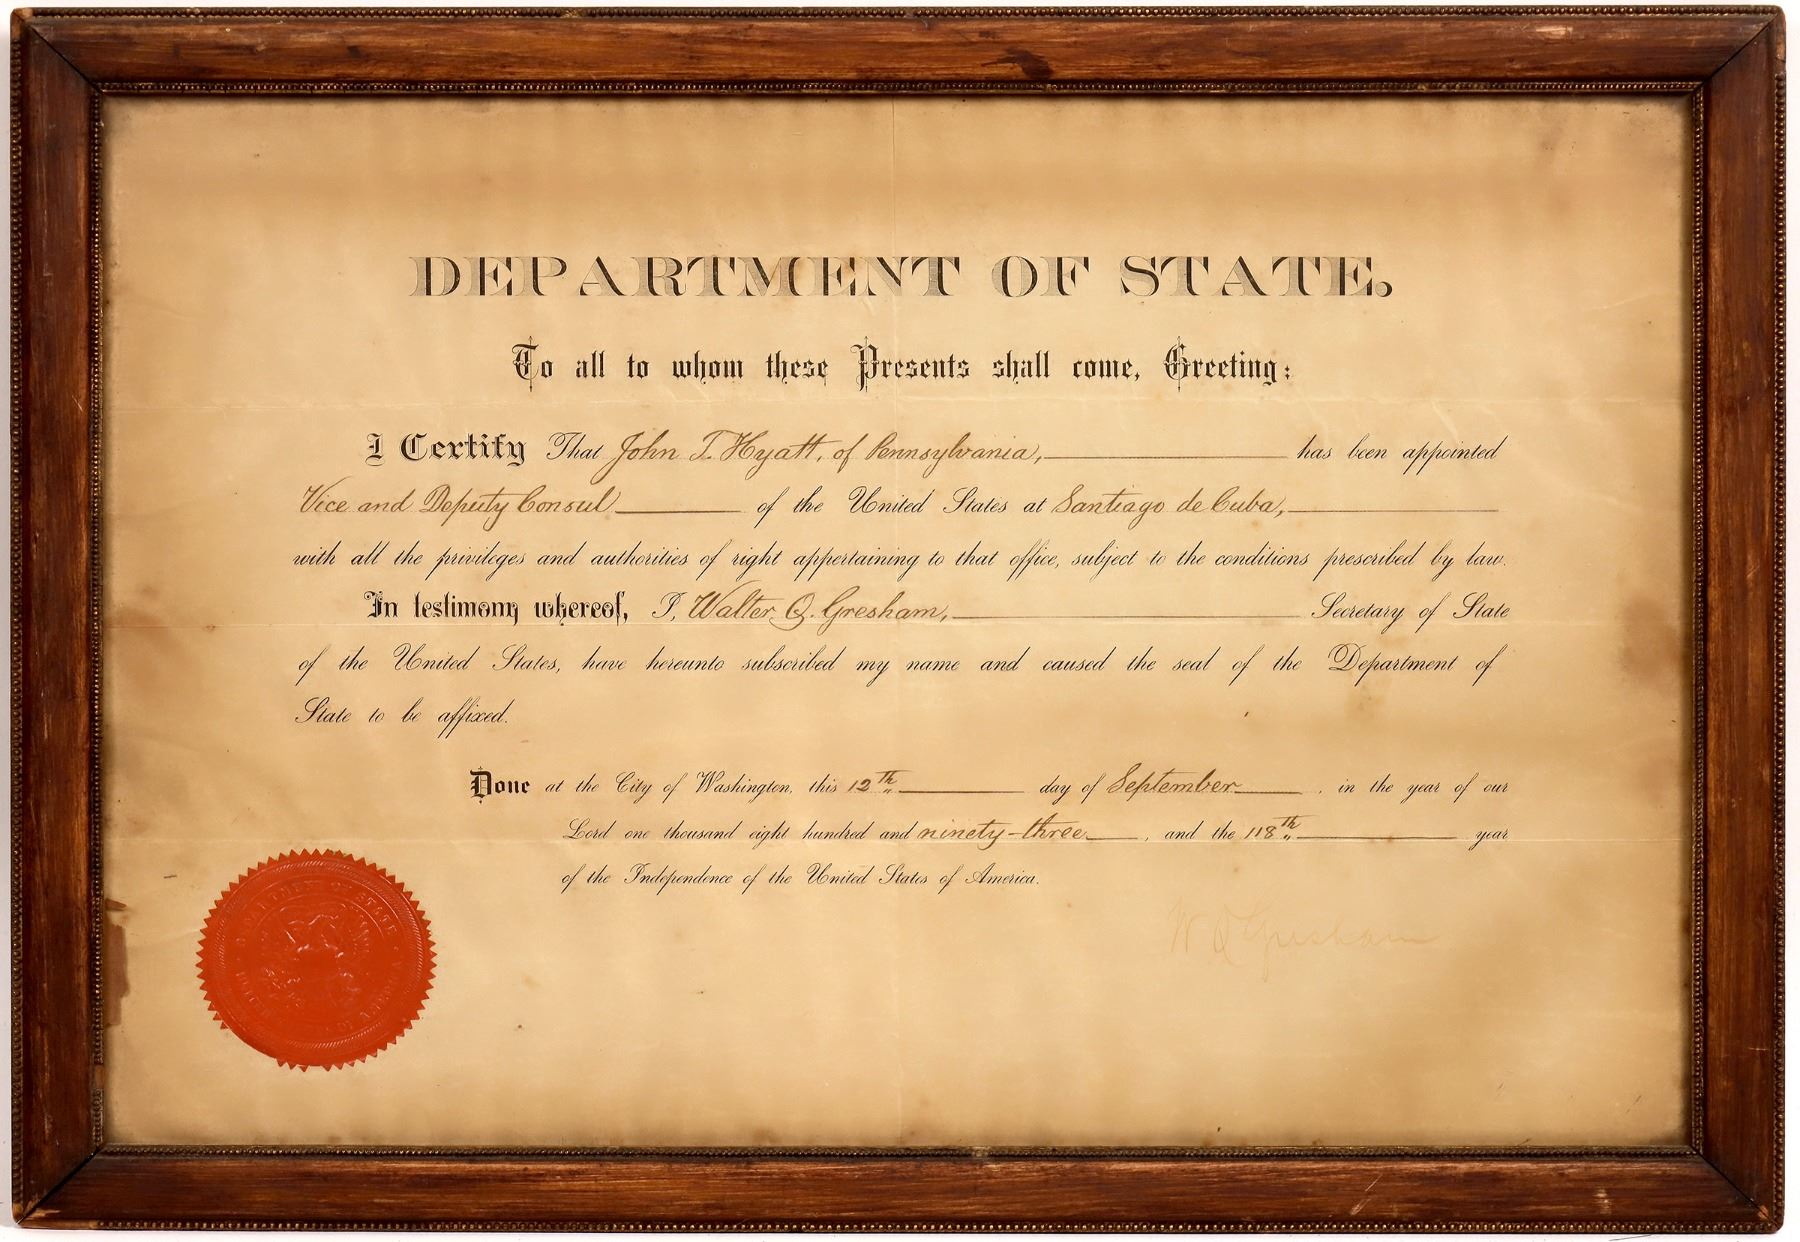 DEPARTMENT OF STATE.
To all to whom these Presents shall come, Greeting:
I Certify That John T. Hyatt, of Pennsylvania, has been appointed
Vice and Deputy Consul of the United States at Santiago de Cuba,
with all the privileges and authorities of right appertaining to that office, subject to the conditions prescribed by law.
In testimony whereof, I, Walter Q. Gresham, Secretary of State
of the United States, have hereunto subscribed my name and caused the seal of the Department of
State to be affixed.
Done at the City of Washington, this 12th day of September, in the year of our
Lord one thousand eight hundred and ninety-three, and the 118th year
of the Independence of the United States of America.
W Q Gresham
DEPARTMENT OF STATE
UNITED STATES OF AMERICA